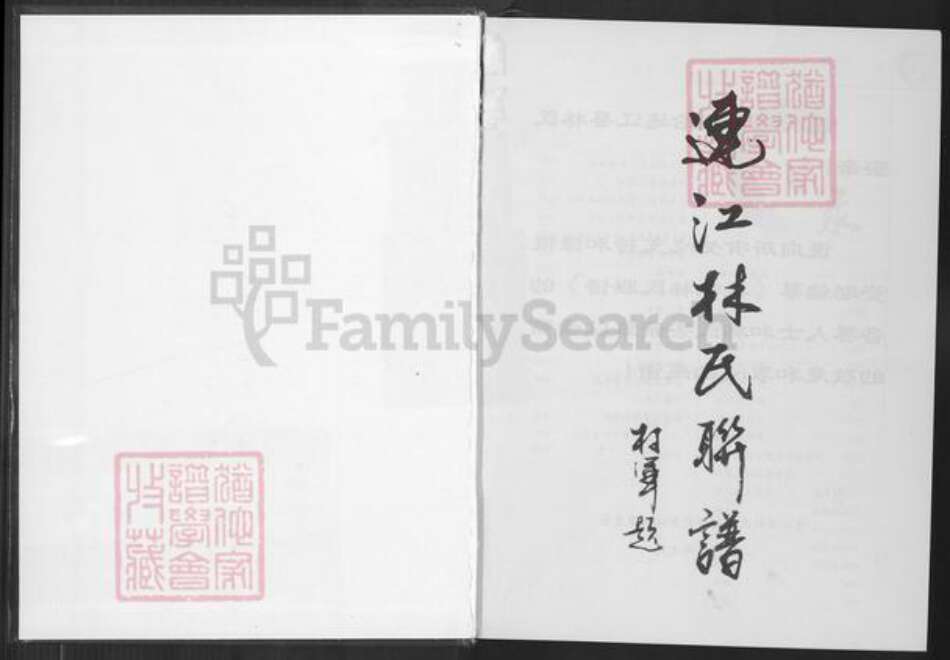 連江林氏聯譜
題
猶他家
譜學會
收藏
猶他家
譜學會
收藏
FamilySearch